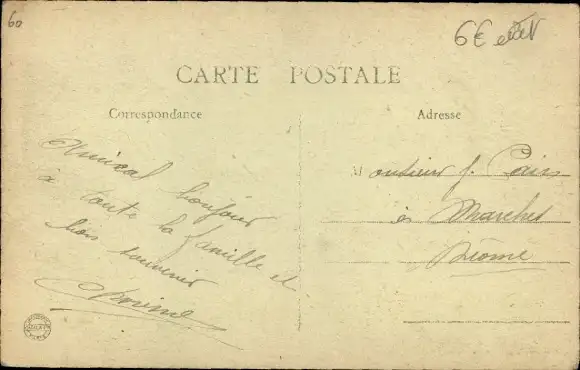 60
6€
CARTE POSTALE
Correspondance
Adresse
Amical bonjour
à toute la famille et
bon souvenir
Monsieur J.
à Marches
Drôme